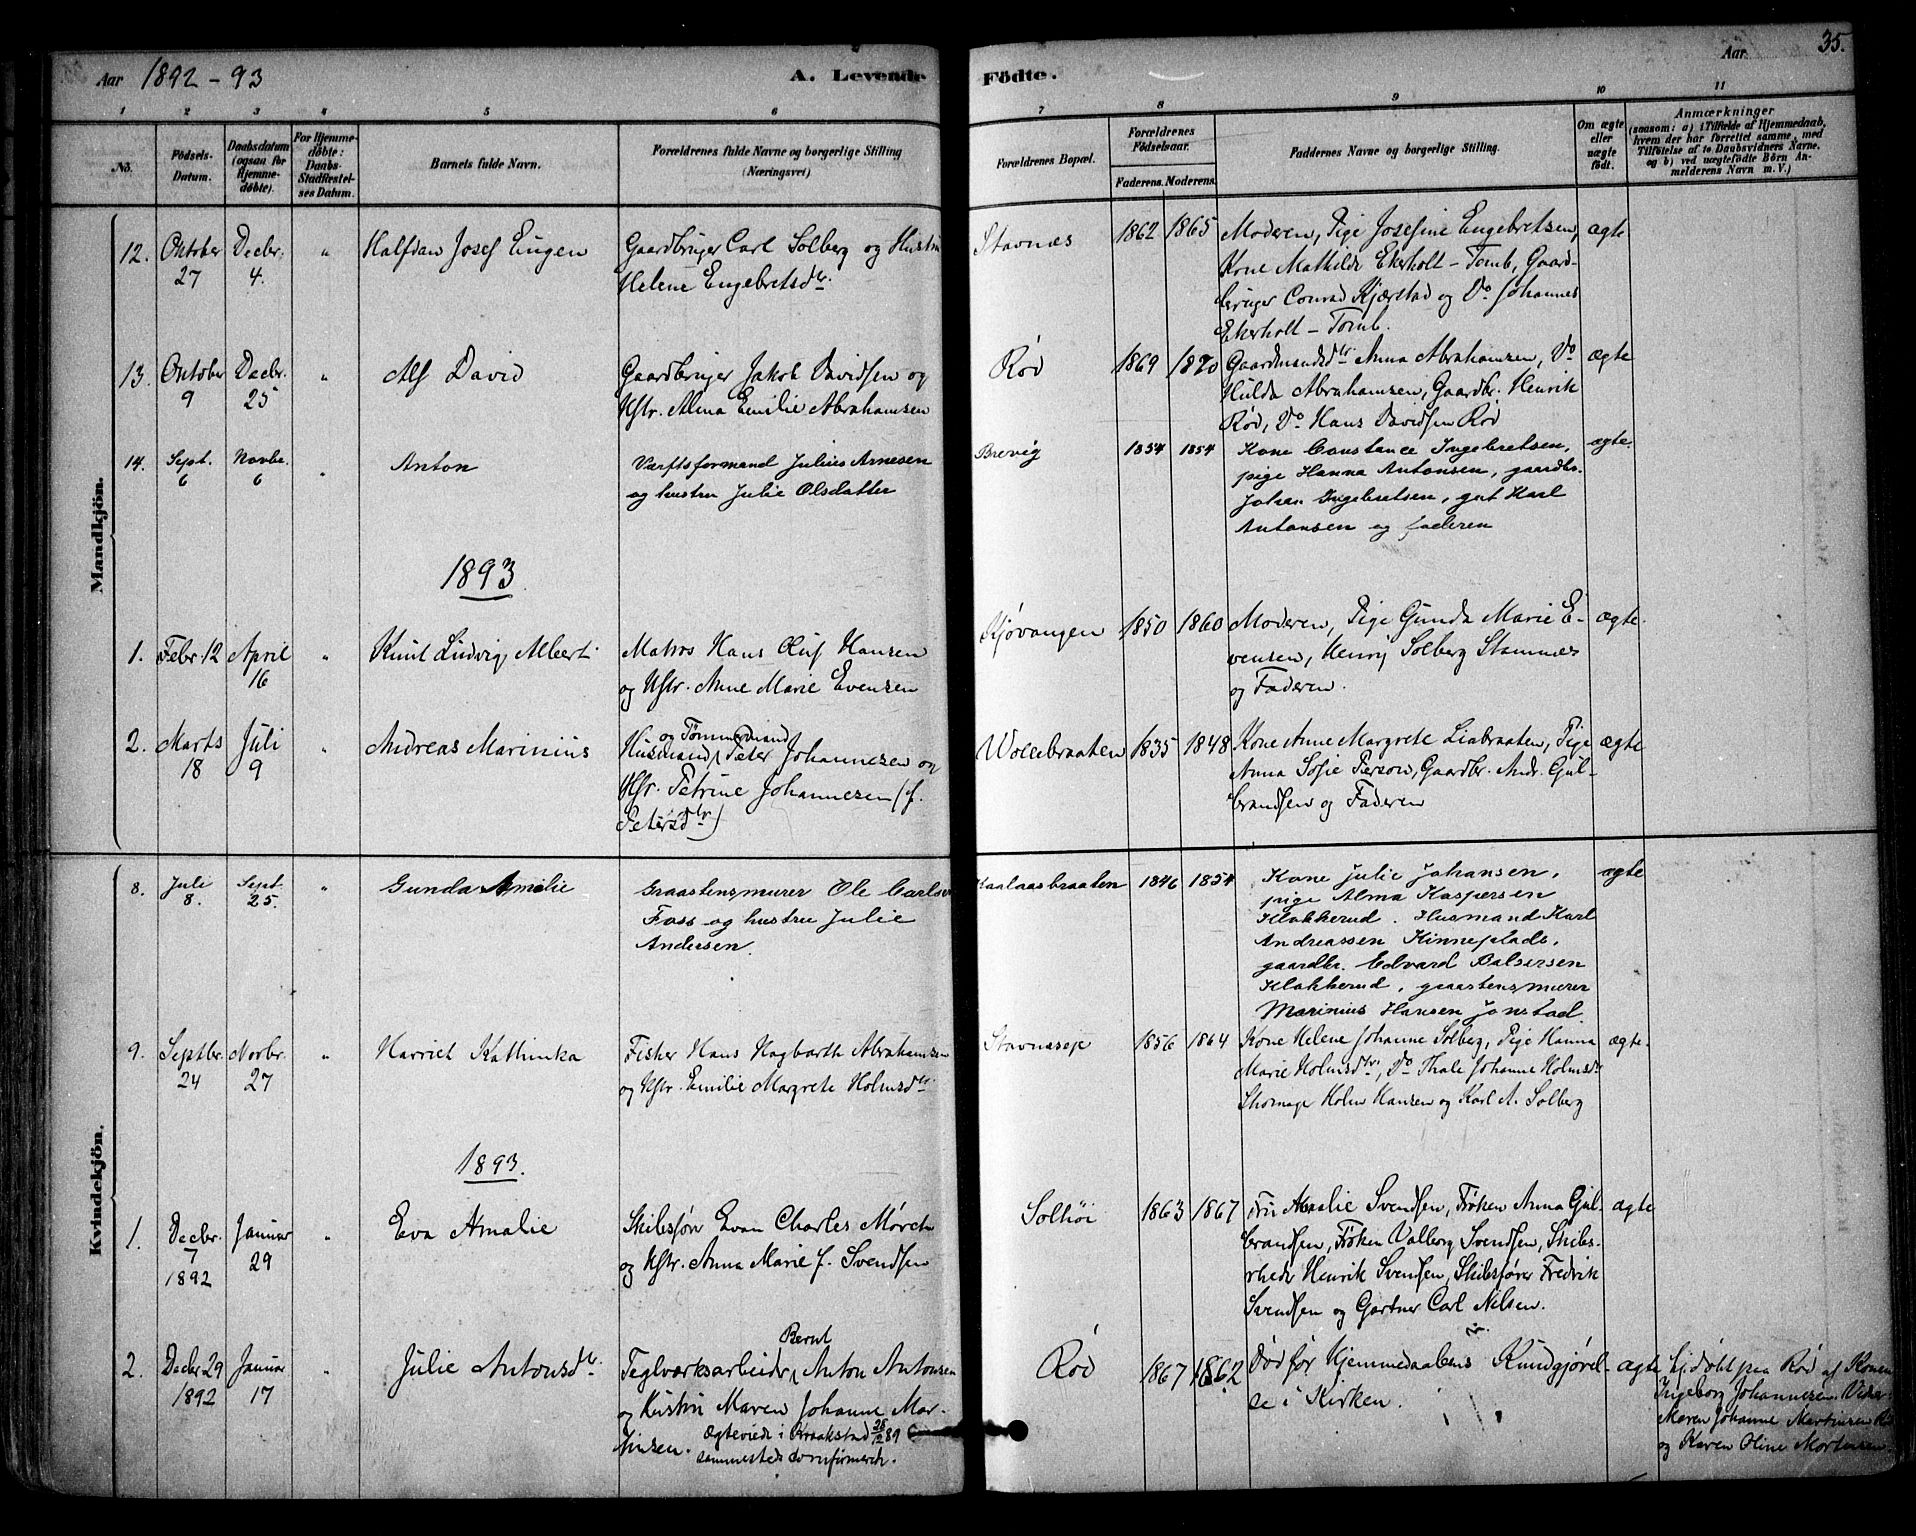 Aar 1892-93
A. Levende
Födte.
Aar
35.
1 2 3 4 5 6 7 8 9 10 11
No.
Födsels-
Datum.
Daabsdatum
(ogsaa for
Hjemme-
döbte).
For Hjemme-
döbte:
Daabs
Stadfæstel-
ses Datum.
Barnets fulde Navn.
Forældrenes fulde Navne og borgerlige Stilling
(Næringsvei)
Forældrenes Bopæl.
Forældrenes
Födselsaar.
Faderens. Moderens.
Faddernes Navne og borgerlige Stilling.
Om ægte
eller
uægte
födt.
Anmærkninger
(saasom: a) i Tilfælde af Hjemmedaab,
hvem der har forrettet samme, med
Tilföielse af to Daabsvidners Navne.
og b) ved uægtefödte Börn An-
melderens Navn m. V.)
Mandkjön.
12.
Oktober
27
Decbr.
4.
"
Halfdan Josef Eugen
Gaardbruger Carl Solberg og Hustru
Helene Engebretsdtr.
Stavnæs
1862 1865
Moderen, Pige Josefine Engebretsen,
Kone Mathilde Ekerholt - Tomb, Gaard-
bruger Conrad Kjærstad og Do Johannes
Ekerholt - Tomb.
ægte
13.
Oktober
9
Decbr.
25
"
Alf David
Gaardbruger Jakob Davidsen og
Hstr. Alma Emilie Abrahamsen
Rød
1869 1870
Gaardmandsdtr Anna Abrahamsen, Do
Hulda Abrahamsen, Gaardbr. Henrik
Rød, Do Hans Davidsen Rød
ægte
14.
Sept.
6
Novbr.
6
"
Anton
Værftsformand Julius Arnesen
og hustru Julie Olsdatter
Brevig
1854 1854
Kone Constance Ingebretsen,
pige Hanna Antonsen, gaardbr.
Johan Ingebretsen, gut Karl
Antonsen og faderen
ægte.
1893
1.
Febr. 12
April
16
"
Knut Ludvig Albert
Matros Hans Oluf Hansen
og Hstr. Anne Marie Evensen
Kjøvangen
1850 1860
Moderen, Pige Gunda Marie E-
vensen, Henrij Solberg Stamnes
og Faderen.
ægte.
2.
Marts
18
Juli
9
"
Andreas Marinius
og Tømmermand
Husmand Peter Johannesen og
Hstr. Petrine Johannesen (f.
Petersdtr)
Wollebraaten
1835 1848
Kone Anne Margrete Liabraaten, Pige
Anna Sofie Person, Gaardbr. Andr. Gul-
brandsen og Faderen
ægte
Kvindekjön.
8.
Juli
8.
Sept.
25.
"
Gunda Amalie
Graastensmurer Ole Carlsen
Foss og hustru Julie
Andersen.
Kaalaasbraaten
1846 1854
Kone Julie Johansen,
pige Alma Kaspersen
Klokkerud. Husmand Karl
Andreassen Kinneplads,
gaardbr. Edvard Balsersen
Klokkerud, graastensmurer
Marinius Hansen Jonstad.
ægte
9.
Septbr.
24
Novbr.
27
"
Harriet Kathinka
Fisker Hans Hagbarth Abrahamsen
og Hstr. Emilie Margrete Holmsdtr.
Stavnæseje
1856 1864
Kone Helene Johanne Solberg, Pige Hanna
Marie Holmsdtr, Do Thale Johanne Holmsdtr
Skomager Holm Hansen og Karl A. Solberg
ægte.
1893.
1.
Decbr.
7
1892
Januar
29
"
Eva Amalie
Skibsfør. Evan Charles Mørch
og Hstr. Anna Marie f. Svendsen
Solhöi
1863 1867
Fru Amalie Svendsen, Frøken Anna Gul-
brandsen, Frøken Valborg Svendsen, Skibs-
rheder Henrik Svendsen, Skibsfører Fredrik
Svendsen og Gartner Carl Nilsen.
ægte
2.
Decbr 29
1892
Januar
17
"
Julie Antonsdtr.
Bernt
Teglværksarbeider Anton Antonsen
og Hustru Maren Johanne Mar-
tinsen. Ægteviede i Kraakstad 28/12 89
sammesteds confirmerede.
Rød
1867 1862
Død før Hjemmedaabens Kundgjørel-
se i Kirken.
ægte
Hj. døbt paa Rød af Konen
Ingeborg Johannesen. Vidner
Maren Johanne Martinsen Rød
og Karen Oline Mortensen.